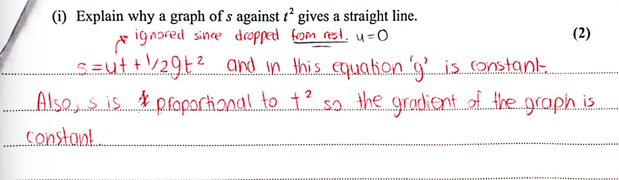 (i) Explain why a graph of s against t² gives a straight line.
ignored since dropped from rest. u=0
(2)
s=ut+1/2gt² and in this equation 'g' is constant.
Also, s is proportional to t² so the gradient of the graph is
constant.